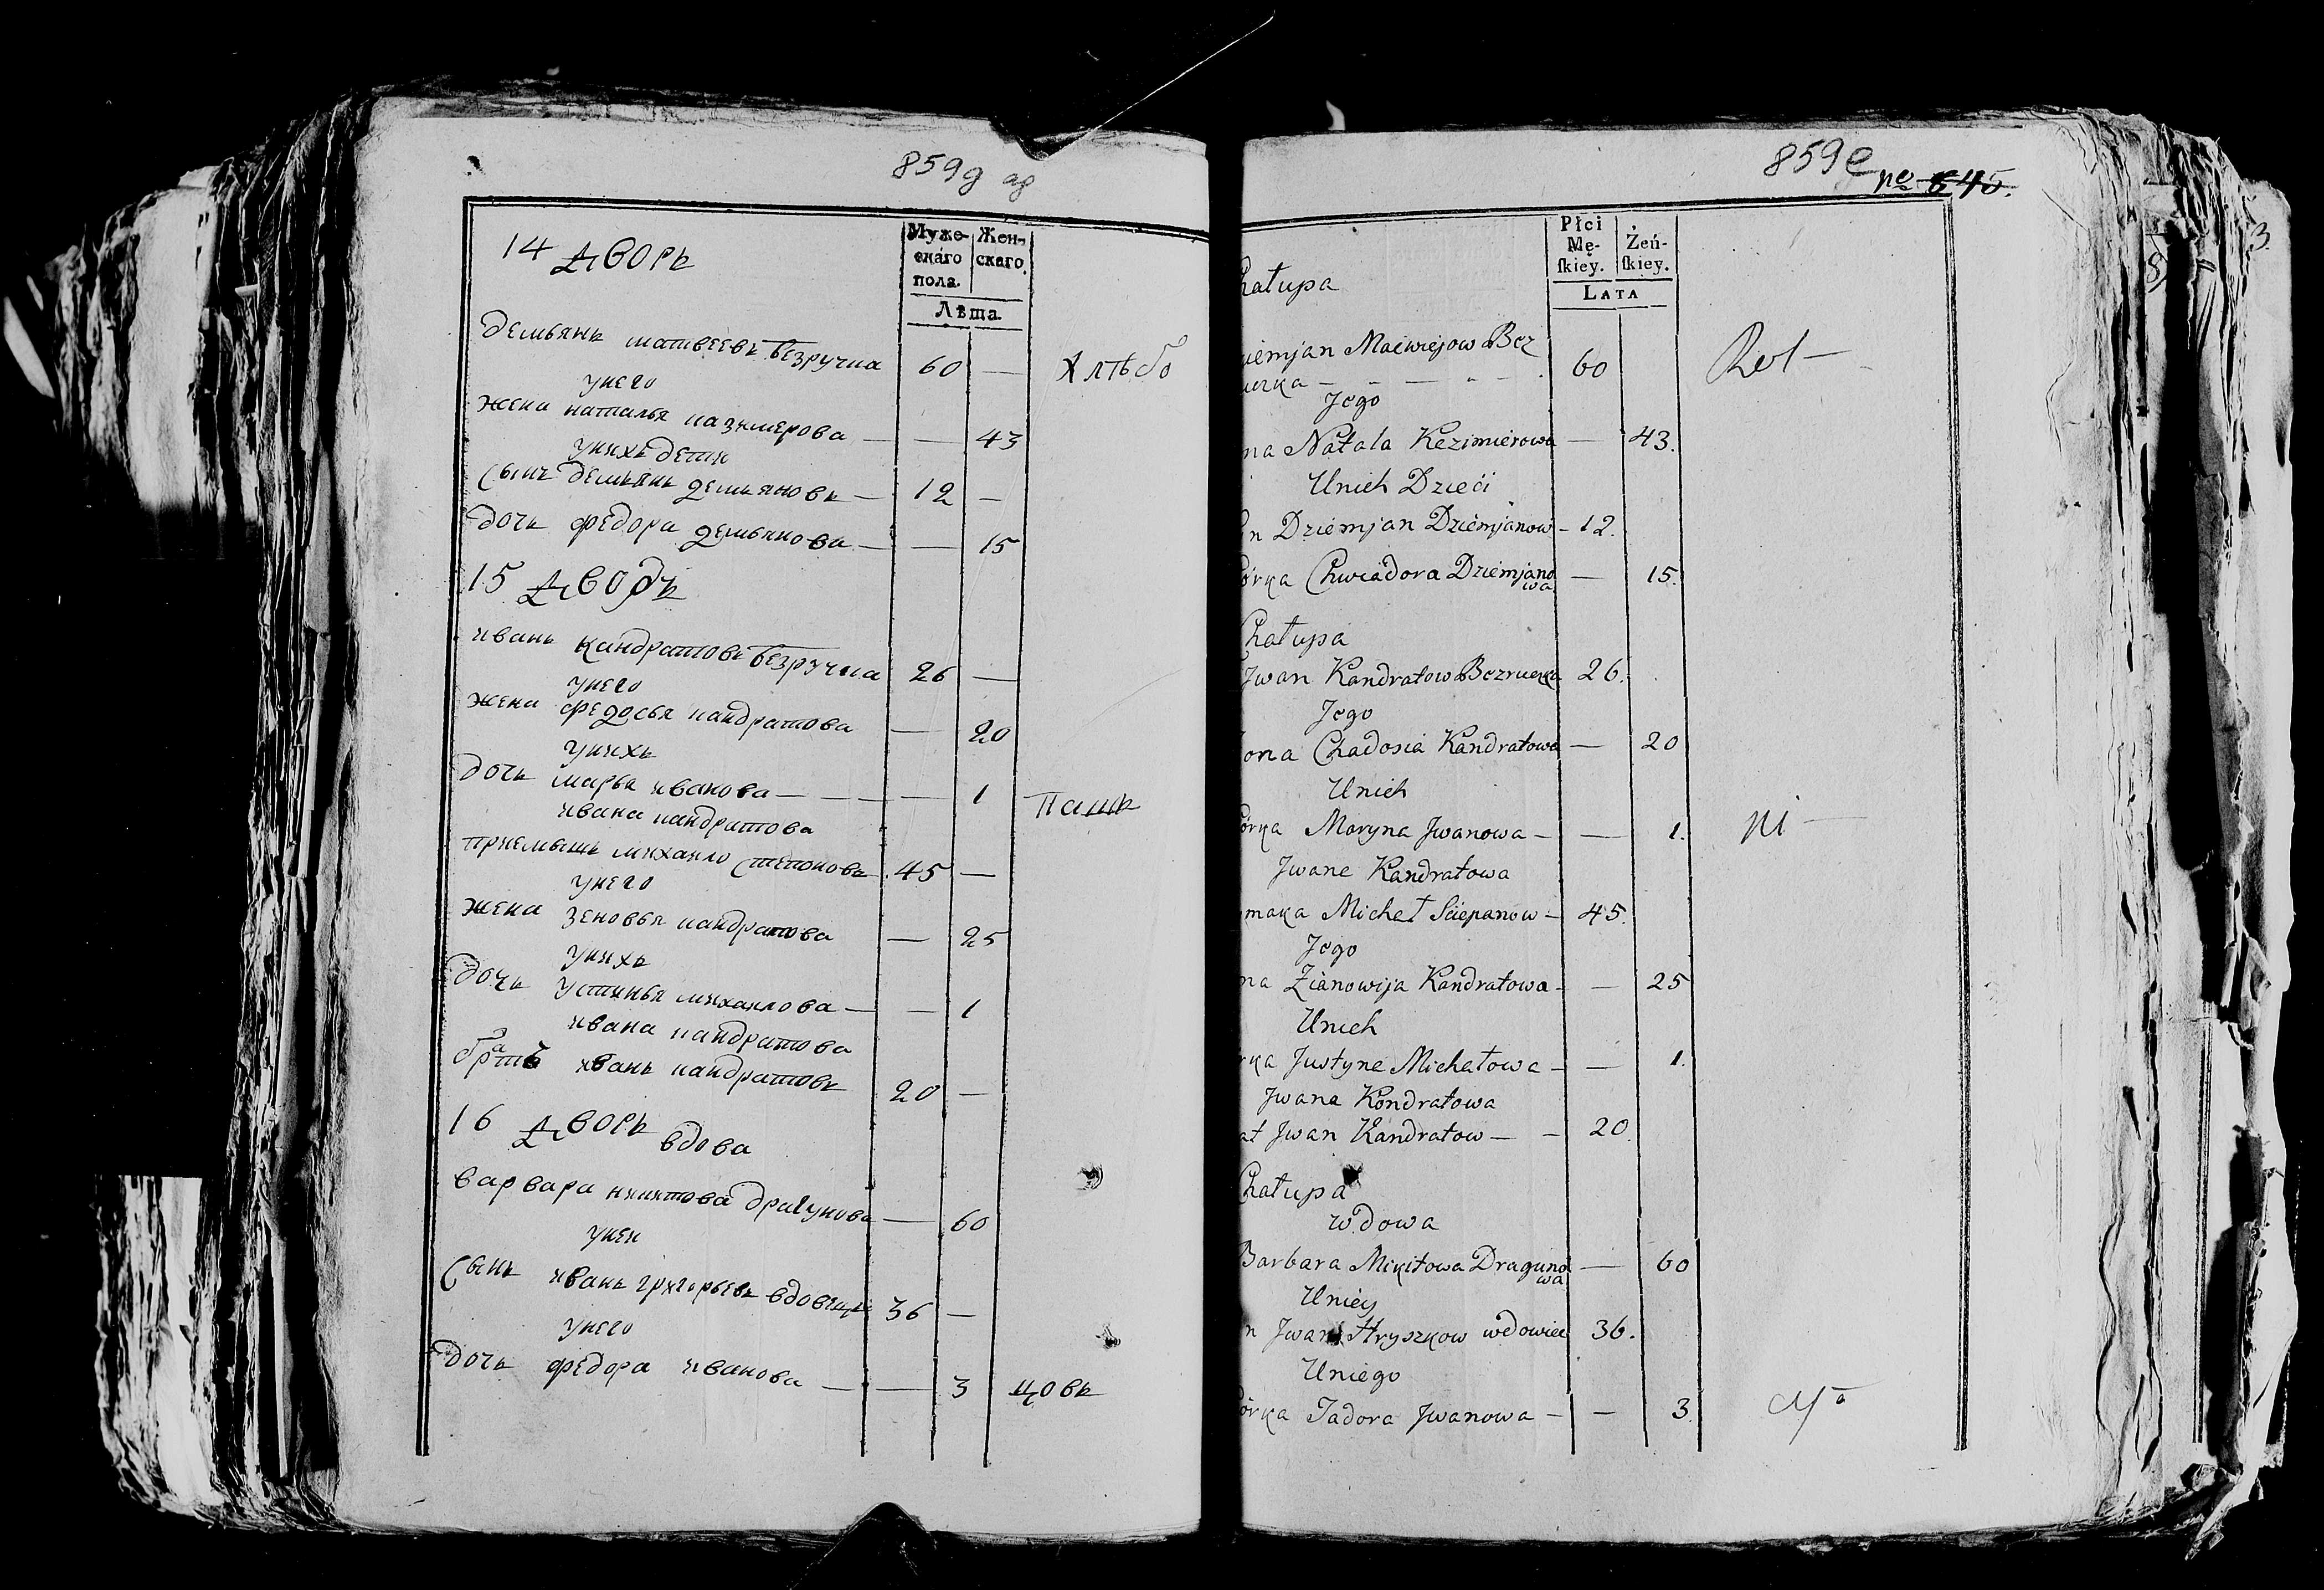 859д об
14 дворъ
Муже-
скаго
пола.
Жен-
скаго.
Лѣта.
демьянъ матвеевъ безручка 60 — хлѣбо
унего
жена наталья казимерова — — 43
унихъ дети
сынъ демьянъ демьяновъ — 12 —
дочь федора демьянова — — 15
15 дворъ
иванъ кандратовъ безручка 26 —
унего
жена федосья кандратова — 20
унихъ
дочь марья иванова — — — — 1 пашъ
ивана кандратова
приемышъ михаило степоновъ 45 —
унего
жена зеновья кандратова — 25
унихъ
дочь устинья михаилова — — 1
ивана кандратова
братъ иванъ кандратовъ 20 —
16 дворъ вдова
варвара никитова драгунова — 60
унеи
сынъ иванъ григорьевъ вдовецъ 36 —
унего
дочь федора иванова — — 3 цовъ
859е
no 645.
Płci
Mę-
ſkiey.
Żeń-
ſkiey.
LATA
hałupa
iemjan Maćwiejow Bez 60 Rol —
ruczka — - - — - -
Jego
na Natala Kezimierowa — 43.
Unich Dzieći
n Dziemjan Dziemjanow — 12.
órka Chwiadora Dziemjano — 15.
wa
Chałupa
Jwan Kandratow Bezruczka 26.
Jego
ona Chadosia Kandratowa — 20
Unich
órka Maryna Jwanowa — — 1. ni —
Jwane Kandratowa
maka Michał Sciepanow — 45.
Jego
na Zianowija Kandratowa — — 25
Unich
rka Justyna Michałowa — — 1.
Jwana Kondratowa
at Jwan Kandratow — — 20.
Chałupa
wdowa
Barbara Mikitowa Draguno — 60
wa
Uniey
n Jwan Hryszkow wdowiec 36.
Uniego
órka Tadora Jwanowa — — 3.